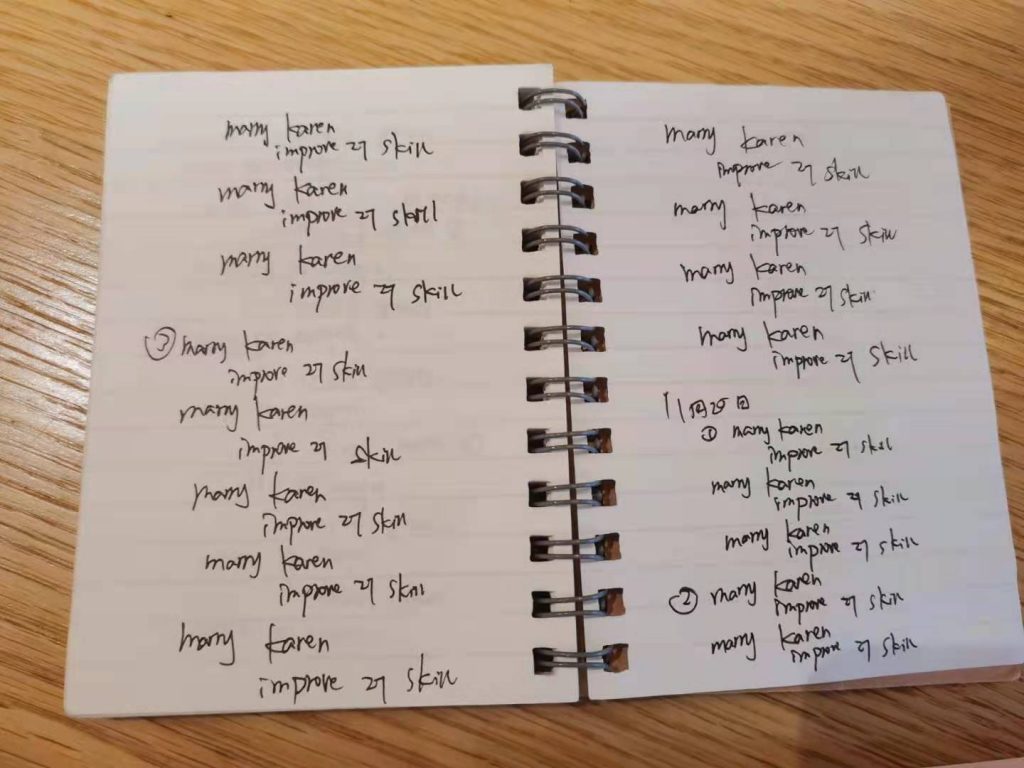 marry karen
improve 27 skill
marry karen
improve 27 skill
marry karen
improve 27 skill
③ marry karen
improve 27 skill
marry karen
improve 27 skill
marry karen
improve 27 skill
marry karen
improve 27 skill
marry karen
improve 27 skill
marry karen
improve 27 skill
marry karen
improve 27 skill
marry karen
improve 27 skill
marry karen
improve 27 skill
11月25日
① marry karen
improve 27 skill
marry karen
improve 27 skill
marry karen
improve 27 skill
② marry karen
improve 27 skill
marry karen
improve 27 skill